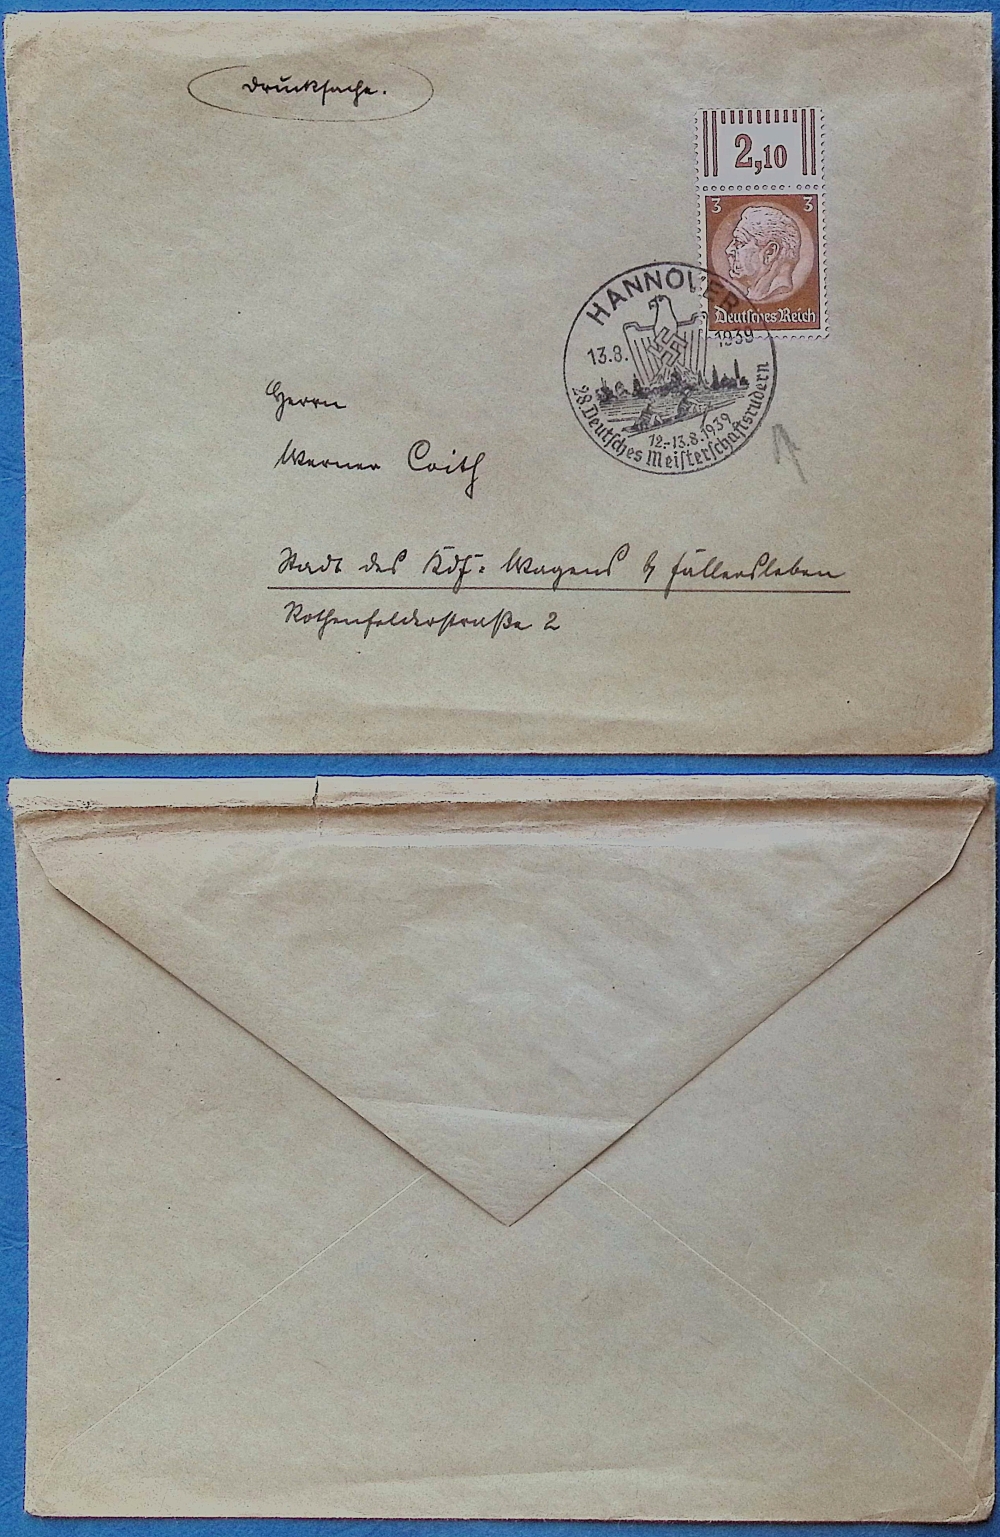 Drucksache.
2,10
3 3
Deutsches Reich
HANNOVER
13.8. 1939
12.-13.8.1939
28. Deutsches Meisterschaftsrudern
Herrn
Werner Coith
Stadt des KdF-Wagens b/ Fallersleben
Rothenfelderstraße 2